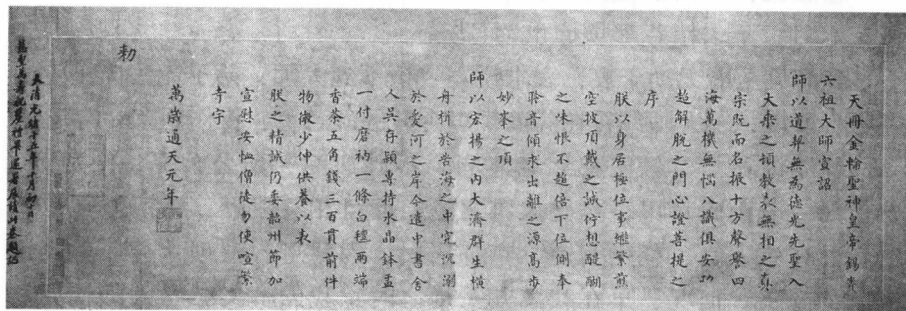 天冊金輪聖神皇帝錫賚
六祖大師宣詔
師以道邦無為德光先聖入
大乘之頓教表無相之真
宗既而名振十方聲譽四
海萬機無惱八識俱安功
超解脫之門心證菩提之
序
朕以身居極位事繼繁煎
空披頂戴之誠佇想醍醐
之味恨不趨倍下位側奉
聆音傾求出離之源高步
妙峯之頂
師以宏揚之內大濟群生橫
舟楫於苦海之中究沉溺
於愛河之岸今遣中書舍
人吳存穎專持水晶鉢盂
一付磨衲一條白㲲兩端
香茶五角錢三百貫前件
物微少伸供養以表
朕之精誠仍委韶州節加
宣慰安恤僧徒勿使喧繁
寺宇
萬歲通天元年
勅
大清光緒十五年十月初十日